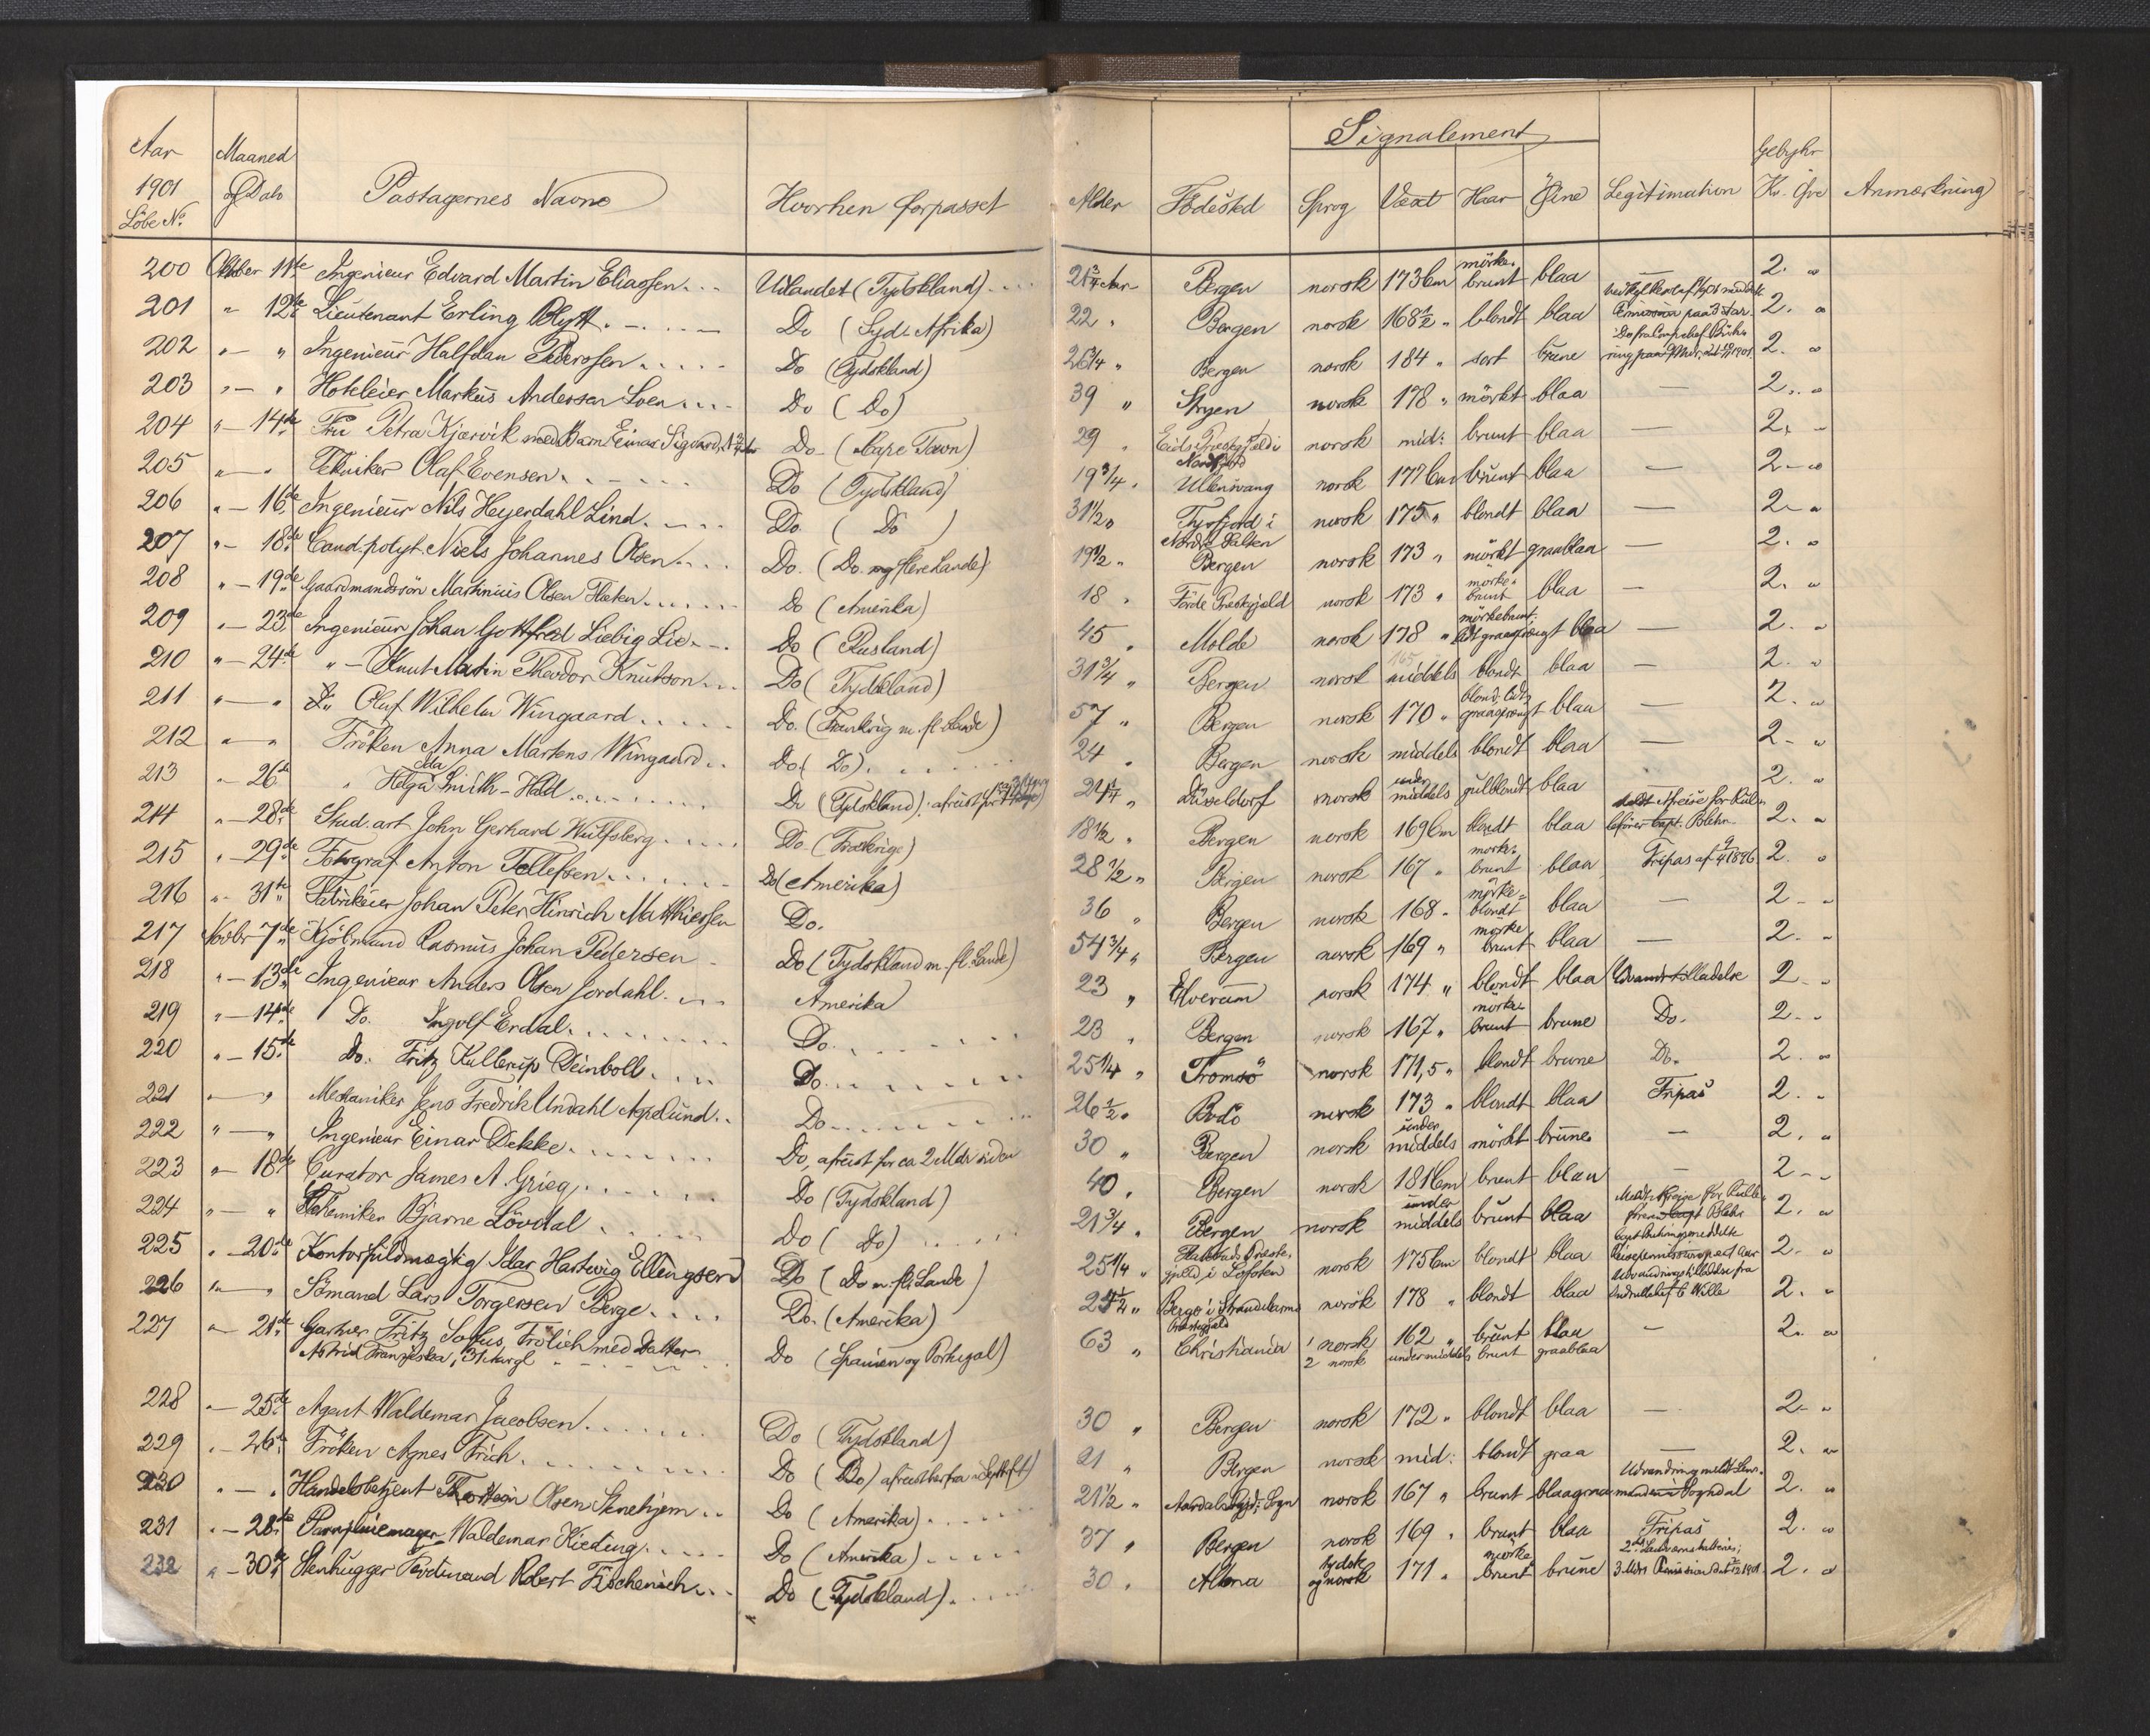 Signalement
Aar 1901 Löbe No. Maaned og Dato Passagernes Navne Hvorhen forpasset Alder Födested Sprog Væxt Haar Öine Legitimation Gebyhr Kr. Öre Anmærkning
200 Oktober 11te Ingenieur Edvard Martin Eliassen Udlandet (Tydskland) 21 3/4 Aar Bergen norsk 173 Cm mörke- brunt blaa — 2. "
201 " 12te Lieutenant Erling Blytt Do (Syd-Afrika) 22 " Bergen norsk 168 1/2 " blondt blaa paa 3 Aar 2. "
202 " — " Ingenieur Halfdan Pederssen Do (Tydskland) 26 3/4 " Bergen norsk 184 " sort brune 1901 2. "
203 " — " Hoteleier Markus Andersen Loen Do (Do) 39 " Stryen norsk 178 " mörkt blaa — 2. "
204 " — 14de Fru Petra Kjærvik med Barn Einar Sigvard, Do (Cape Town) 29 " Eids Præstegjæld i Nordfjord norsk mid: brunt blaa — 2. "
205 " — " Tekniker Olaf Evensen Do (Tydskland) 19 3/4 " Ullensvang norsk 177 Cm brunt blaa — 2 — "
206 " — 16de Ingenieur Nils Heyerdahl Lind Do. ( Do ) 31 1/2 " Tysfjord i Nordre Salten norsk 175 " blondt blaa — 2 — "
207 " — 18de Cand. polyt. Niels Johannes Olsen Do. (Do. og flere Lande) 19 1/2 " Bergen norsk 173 " mörkt graablaa — 2. "
208 " — 19de Gaardmandssön Martinius Olsen Flæten Do (Amerika) 18 " Förde Præstgjæld norsk 173 " mörke- brunt blaa — 2. "
209 " — 23de Ingenieur Johan Gottfred Liebig Lie Do (Rusland) 45 " Molde norsk 178 " mörkebrunt, lidt graasprængt blaa — 2. "
210 " — 24de " — Knut Martin Theodor Knutson Do (Tydskland) 31 3/4 " Bergen norsk 165 middels blondt blaa — 2. "
211 " — " Olaf Wilhelm Wingaard Do. (Frankrig m. fl. Lande) 57 " Bergen norsk 170 " blondt lidt graasprængt blaa — 2. "
212 " — " Fröken Anna Martens Wingaard Do (Do) 24 " Bergen norsk middels blondt blaa — 2 - "
213 " — 26de " Helga Ida Smith-Hald Do (Tydskland) afreist for 21 1/4 " Düsseldorf norsk under middels gulblondt blaa 2. "
214 " — 28de Stud. art. John Gerhard Wulfsberg Do. (Frankrige) 18 1/2 " Bergen norsk 169 Cm blondt blaa Meldt Afreise for Rulle- förer Capt. Blehr 2. "
215 " — 29de Fotograf Anton Tellefsen Do (Amerika) 28 1/2 " Bergen norsk 167 " mörke- brunt blaa Fripas af 9/4 1896 2. "
216 " — 31te Fabrikeier Johan Peter Hinrich Matthiessen Do. 36 " Bergen norsk 168 " mörke- blondt blaa — 2 - "
217 Novbr 7de Kjöbmand Rasmus Johan Pedersen Do (Tydskland m. fl. Lande) 54 3/4 " Bergen norsk 169 " mörke brunt blaa — 2. "
218 " — 13de Ingenieur Anders Olsen Jordahl Amerika 23 " Elverum norsk 174 " blondt blaa Udvandr. tilladelse 2 - "
219 " — 14de Do. Ingolf Erdal Do. 23 " Bergen norsk 167 " mörke- brunt brune Do. 2 - "
220 " — 15de Do. Fritz Kullerup Deinboll Do. 25 1/4 " Tromsö norsk 171,5 " blondt brune Do. 2. "
221 " — " Mekaniker Jens Fredrik Undahl Asplund Do. 26 1/2 " Bodö norsk 173 " blondt blaa Fripas 2. "
222 " — " Ingenieur Einar Dekke Do, afreist for ca 2 Mdr siden 30 " Bergen norsk under middels mörkt brune — 2. "
223 " — 18de Curator James A. Grieg Do (Tydskland) 40 " Bergen norsk 181 Cm brunt blaa — 2 - "
224 " — " Kemiker Bjarne Lövdal Do ( Do) 21 3/4 " Bergen norsk under middels brunt blaa Meldt Afreise for Rulle- förer Capt Blehr 2. "
225 " — 20de Kontorfuldmægtig Idar Hartvig Ellingsen Do (Do m. fl. Lande) 25 1/4 " Præste- gjæld i Lofoten norsk 175 Cm blondt blaa 2. "
226 " — " Sömand Lars Torgersen Berge Do. (Amerika) 25 1/4 " Berge i Strandebarms Præstegjæld norsk 178 " blondt blaa Udvandringstilladelse fra Wille 2. "
227 " — 21de Gartner Fritz Sofus Frölich med Datter Do (Spanien og Portugal) 63 " Christiania 1 norsk 162 " brunt blaa — 2. "
Astrid Franziska, 31 Aargl 2 norsk undermiddels brunt graablaa
228 " — 25de Agent Waldemar Jacobsen Do (Tydskland) 30 " Bergen norsk 172 " blondt blaa — 2 - "
229 " — 26de Fröken Agnes Frich Do (Do) afreist herfra i Septbr 21 " Bergen norsk mid: blondt graa — 2. "
230 " — " Handelsbetjent Thorstein Olsen Stenehjem Do (Amerika) 21 1/2 " Aardals Pgd: Sogn norsk 167 " brunt blaagraa Udvandring meldt Lens- manden i Sogndal 2. "
231 " — 28de Paraplymager Waldemar Kieding Do (Amerika) 37 " Bergen norsk 169 " brunt blaa Fripas 2. "
232 " — 30te Stenhugger Ferdinand Robert Fischenich Do (Tydskland) 30 " Altona tydsk og norsk 171 " mörke brunt brune 3 Mdrs Permission 1901. 2. "